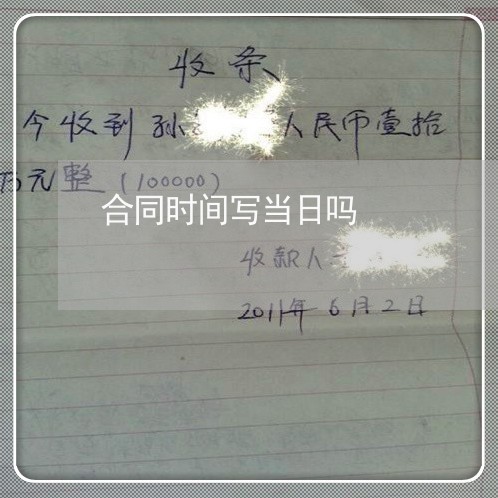 收条
今收到孙 人民币壹拾
万元整（100000）
合同时间写当日吗
收款人
2011年6月2日